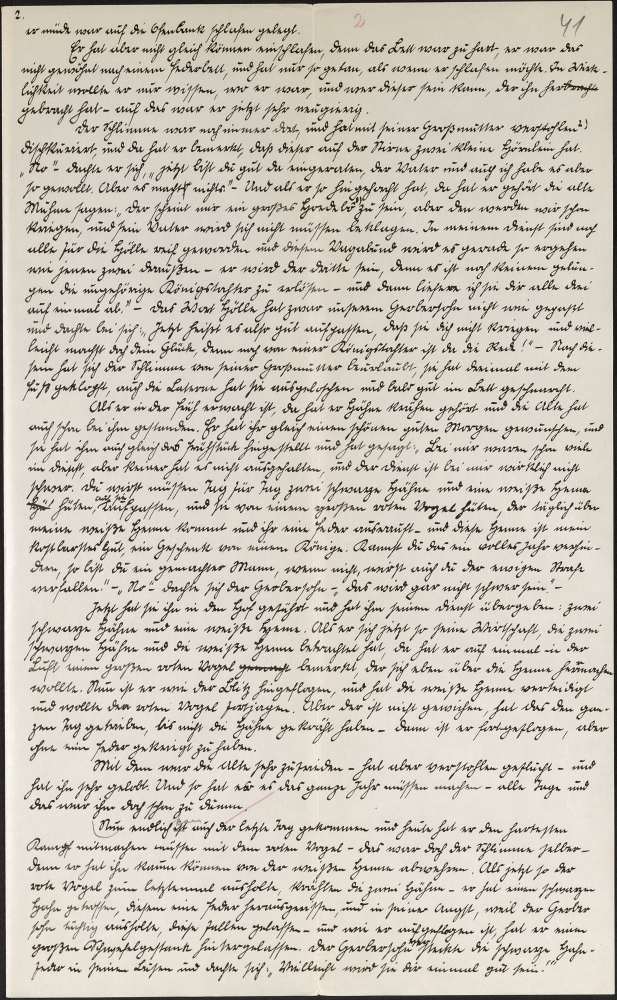 2.
2
41
er müde war auf die Ofenbank schlafen gelegt.
Er hat aber nicht gleich können einschlafen, denn das Bett war zu hart, er war das
nicht gewohnt nach einem Federbett, und hat nur so getan, als wenn er schlafen möchte. In Wirk-
lichkeit wollte er nur wissen, wo er war, und wer dieser sein kann, der ihn her
gebracht hat – auf das war er jetzt sehr neugierig.
Der Schlimme war noch immer dort, und hat mit seiner Großmutter verstohlen
dischkuriert, und da hat er bemerkt, daß dieser auf der Stirne zwei kleine Hörnlein hat.
„No" – dachte er sich, „jetzt bist du gut da eingeraten, der Vater und auch ich habe es aber
so gewollt. Aber es macht nichts." – Und als er so hin gehorcht hat, da hat er gehört die alte
Mühme sagen: „Der scheint mir ein großes zu sein, aber den werden wir schon
kriegen, und sein Vater wird sich nicht müssen beklagen. In meinem Dienst sind noch
alle für die Hölle reif geworden und diesem Vagabund wird es gerade so ergehen
wie jenen zwei draußen – er wird der dritte sein, denn es ist noch keinem gelun-
gen die ungehörige Königstochter zu erlösen – und dann liefere ich sie dir alle drei
auf einmal ab." – Das Wort Hölle hat zwar unserem Gerbersohn nicht wie gepaßt
und dachte bei sich: „Jetzt heißt es also gut aufpassen, daß sie dich nicht kriegen und viel-
leicht machst doch dein Glück, denn noch von einer Königstochter ist da die Rede!" – Nach die-
sem hat sich der Schlimme von seiner Großmutter beurlaubt, sie hat dreimal mit dem
Fuß geklopft, auch die Laterne hat sie ausgeloschen und bald gut im Bett geschnarcht.
Als er in der Früh erwacht ist, da hat er Hähne krähen gehört und die Alte hat
auch schon bei ihm gestanden. Er hat ihr gleich einen schönen guten Morgen gewunschen, und
sie hat ihm auch gleich das Frühstück hingestellt und hat gesagt: „Bei mir waren schon viele
im Dienst, aber keiner hat es nicht ausgehalten, und der Dienst ist bei mir wirklich nicht
schwer. Du wirst müssen Tag für Tag zwei schwarze Hähne und eine weiße Henne
hüten, auch aufpassen, und sie von einem großen roten Vogel hüten, der täglich über
meine weiße Henne kommt und ihr eine Feder ausrauft – und diese Henne ist mein
kostbarstes Gut, ein Geschenk von einem Könige. Kannst du das ein volles Jahr verhin-
dern, so bist du ein gemachter Mann, wenn nicht, wirst auch du der ewigen Strafe
verfallen." – „No" – dachte sich der Gerbersohn –, das wird gar nicht schwer sein." –
Jetzt hat sie ihn in den Hof geführt und hat ihm seinen Dienst übergeben: zwei
schwarze Hähne und eine weiße Henne. Als er sich jetzt so seine Wirtschaft, die zwei
schwarzen Hähne und die weiße Henne betrachtet hat, da hat er auf einmal in der
Luft einen großen roten Vogel bemerkt, der sich eben über die Henne hermachen
wollte. Nun ist er wie der Blitz hingeflogen, und hat die weiße Henne verteidigt
und wollte den roten Vogel fortjagen. Aber der ist nicht gewichen, hat das den gan-
zen Tag getrieben, bis nicht die Hähne gekräht haben – dann ist er fortgeflogen, aber
ohne eine Feder gekriegt zu haben.
Mit dem war die Alte sehr zufrieden – hat aber verstohlen geflucht – und
hat ihn sehr gelobt. Und so hat er es das ganze Jahr müssen machen – alle Tage und
das war ihm doch schon zu dumm.
Nun endlich ist auch der letzte Tag gekommen und heute hat er den hartesten
Kampf mitmachen müssen mit dem roten Vogel – das war doch der Schlimme selber –
denn er hat ihn kaum können von der weißen Henne abwehren. Als jetzt so der
rote Vogel zum letztenmal ausholte, krähten die zwei Hähne – er hat einen schwarzen
Hahn getroffen, diesem eine Feder herausgerissen und in seiner Angst, weil der Gerber
sohn tüchtig ausholte, diese fallen gelassen – und wie er aufgeflogen ist, hat er einen
großen Schwefelgestank hintergelassen. Der Gerbersohn steckte die schwarze Hahn-
feder in seinen Busen und dachte sich: „Vielleicht wird sie dir einmal gut sein."